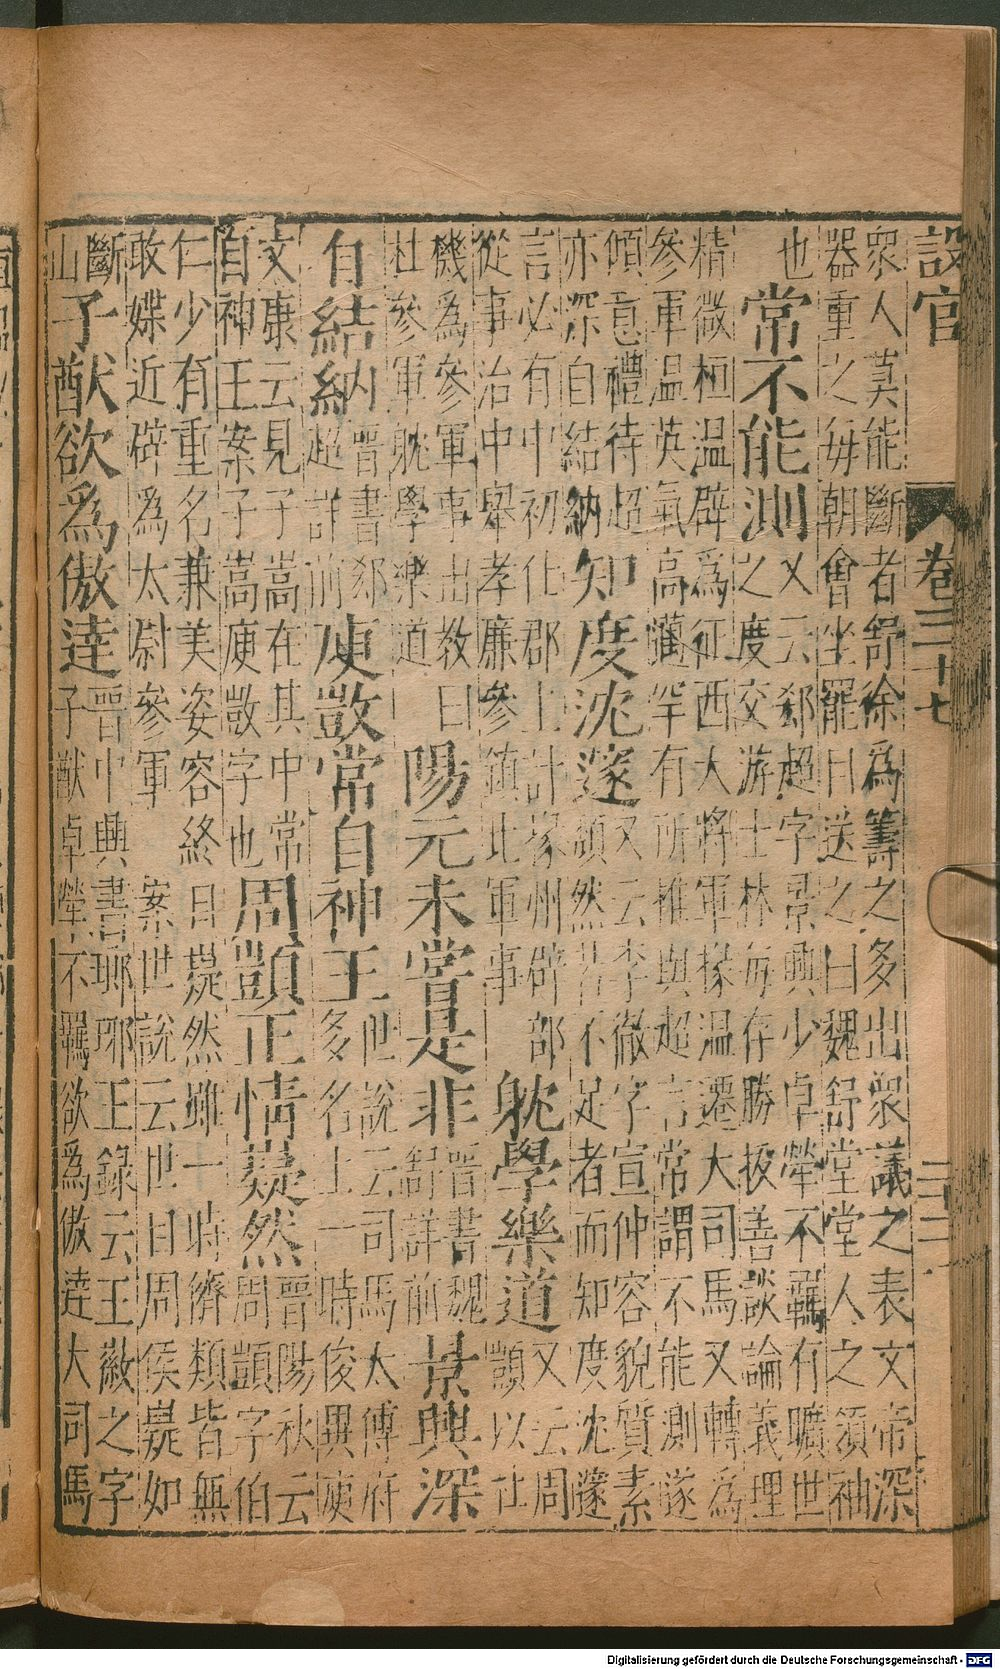 設官 卷三十七 二十二
衆人莫能斷者舒徐為籌之多出衆議之表文帝深
器重之每朝會坐罷目送之曰魏舒堂堂人之領袖
也
常不能測
又云郄超字景興少卓犖不羈有曠世
之度交游士林每存勝拔善談論義理
精微桓温辟為征西大將軍掾温遷大司馬又轉為
參軍温英氣高邁罕有所推與超言常謂不能測遂
傾意禮待超
亦深自結納
知度沈邃
又云李徹字宣仲容貌質素
頹然若不足者而知度沈邃
言必有中初仕郡上計掾州辟部
從事治中舉孝廉參鎮北軍事
躭學樂道
又云周
顗以社
機為參軍事出教曰
杜參軍躭學樂道
陽元未嘗是非
晉書魏
舒詳前
景興深
自結納
晉書郄
超詳前
庾敳常自神王
世說云司馬太傅府
多名士一時俊異庾
文康云見子嵩在其中常
自神王案子嵩庾敳字也
周顗正情嶷然
晉陽秋云
周顗字伯
仁少有重名兼美姿容終日嶷然雖一時儕類皆無
敢媟近辟為太尉參軍 案世說云世目周侯嶷如
斷
山
子猷欲爲傲達
晉中興書瑯琊王錄云王徽之字
子猷卓犖不羈欲爲傲達大司馬
Digitalisierung gefördert durch die Deutsche Forschungsgemeinschaft - DFG